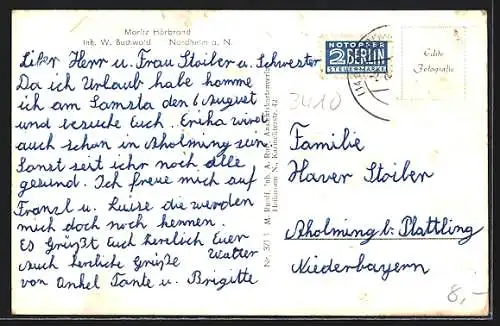 Moritz Hörbrand
Inh. W. Buchwald Nordheim a. N.
Liber Herr u. Frau Stoiber u. Schwester
Da ich Urlaub habe komme
ich am Samsta den 6 August
und besuche Euch. Erika wird
auch schon in Aholming sein
Sonst seit ichr noch alle
gesund. Ich freue mich auf
Franzl u. Luise die werden
mich doch noch kennen.
Es Grüßt Euch herzlich Euer
Walter
Auch herzliche Grüße
von Onkel Tante u. Brigitte
NOTOPFER
2 BERLIN
STEUERMARKE
Echte
Fotografie
3410
Familie
Haver Stoiber
Aholming b. Plattling
Niederbayern
8,-